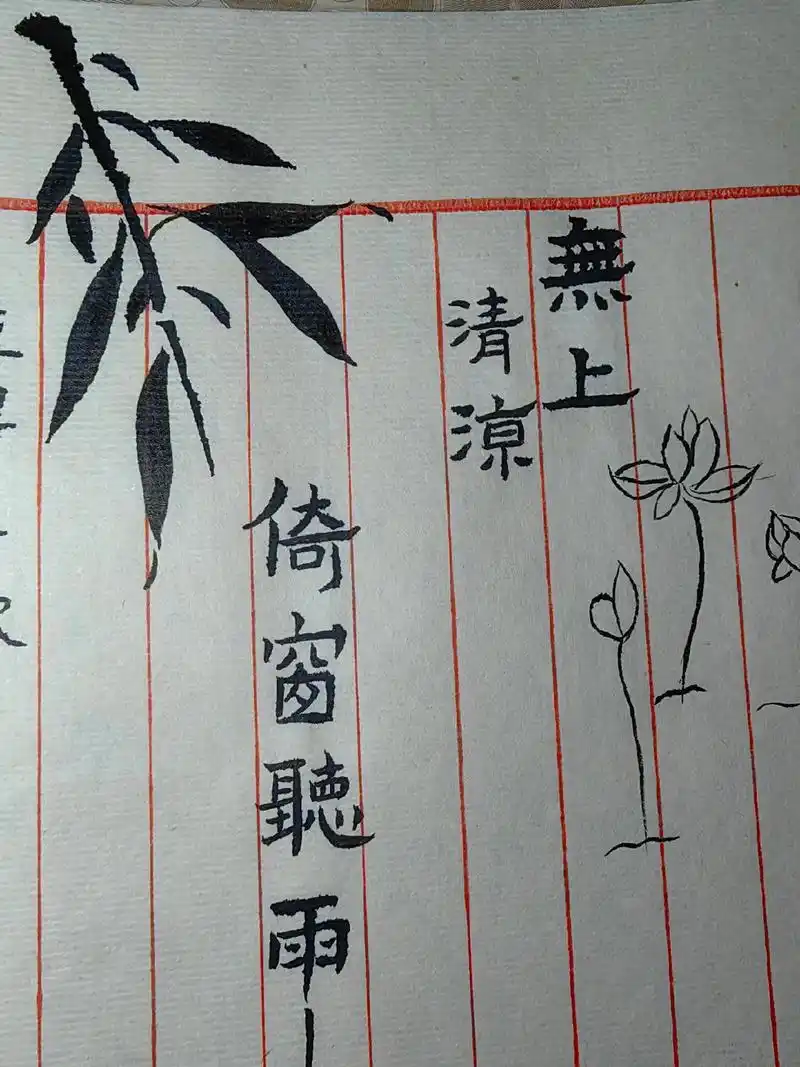 無上
清涼
倚窗聽雨